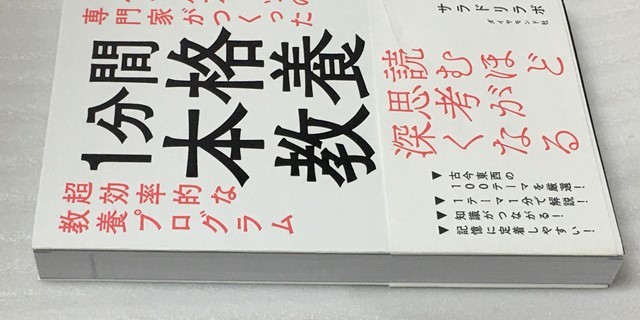 専門家がつくった
1分間
本格
教養
超効率的な
教養プログラム
サラドリラボ
ダイヤモンド社
読むほど
思考が
深くなる
▼古今東西の
100テーマを厳選!
▼1テーマ1分で解説!
▼知識がつながる!
▼記憶に定着しやすい!